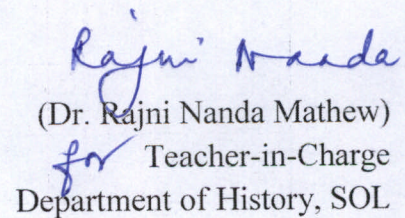 Rajni Nanda
(Dr. Rajni Nanda Mathew)
for Teacher-in-Charge
Department of History, SOL